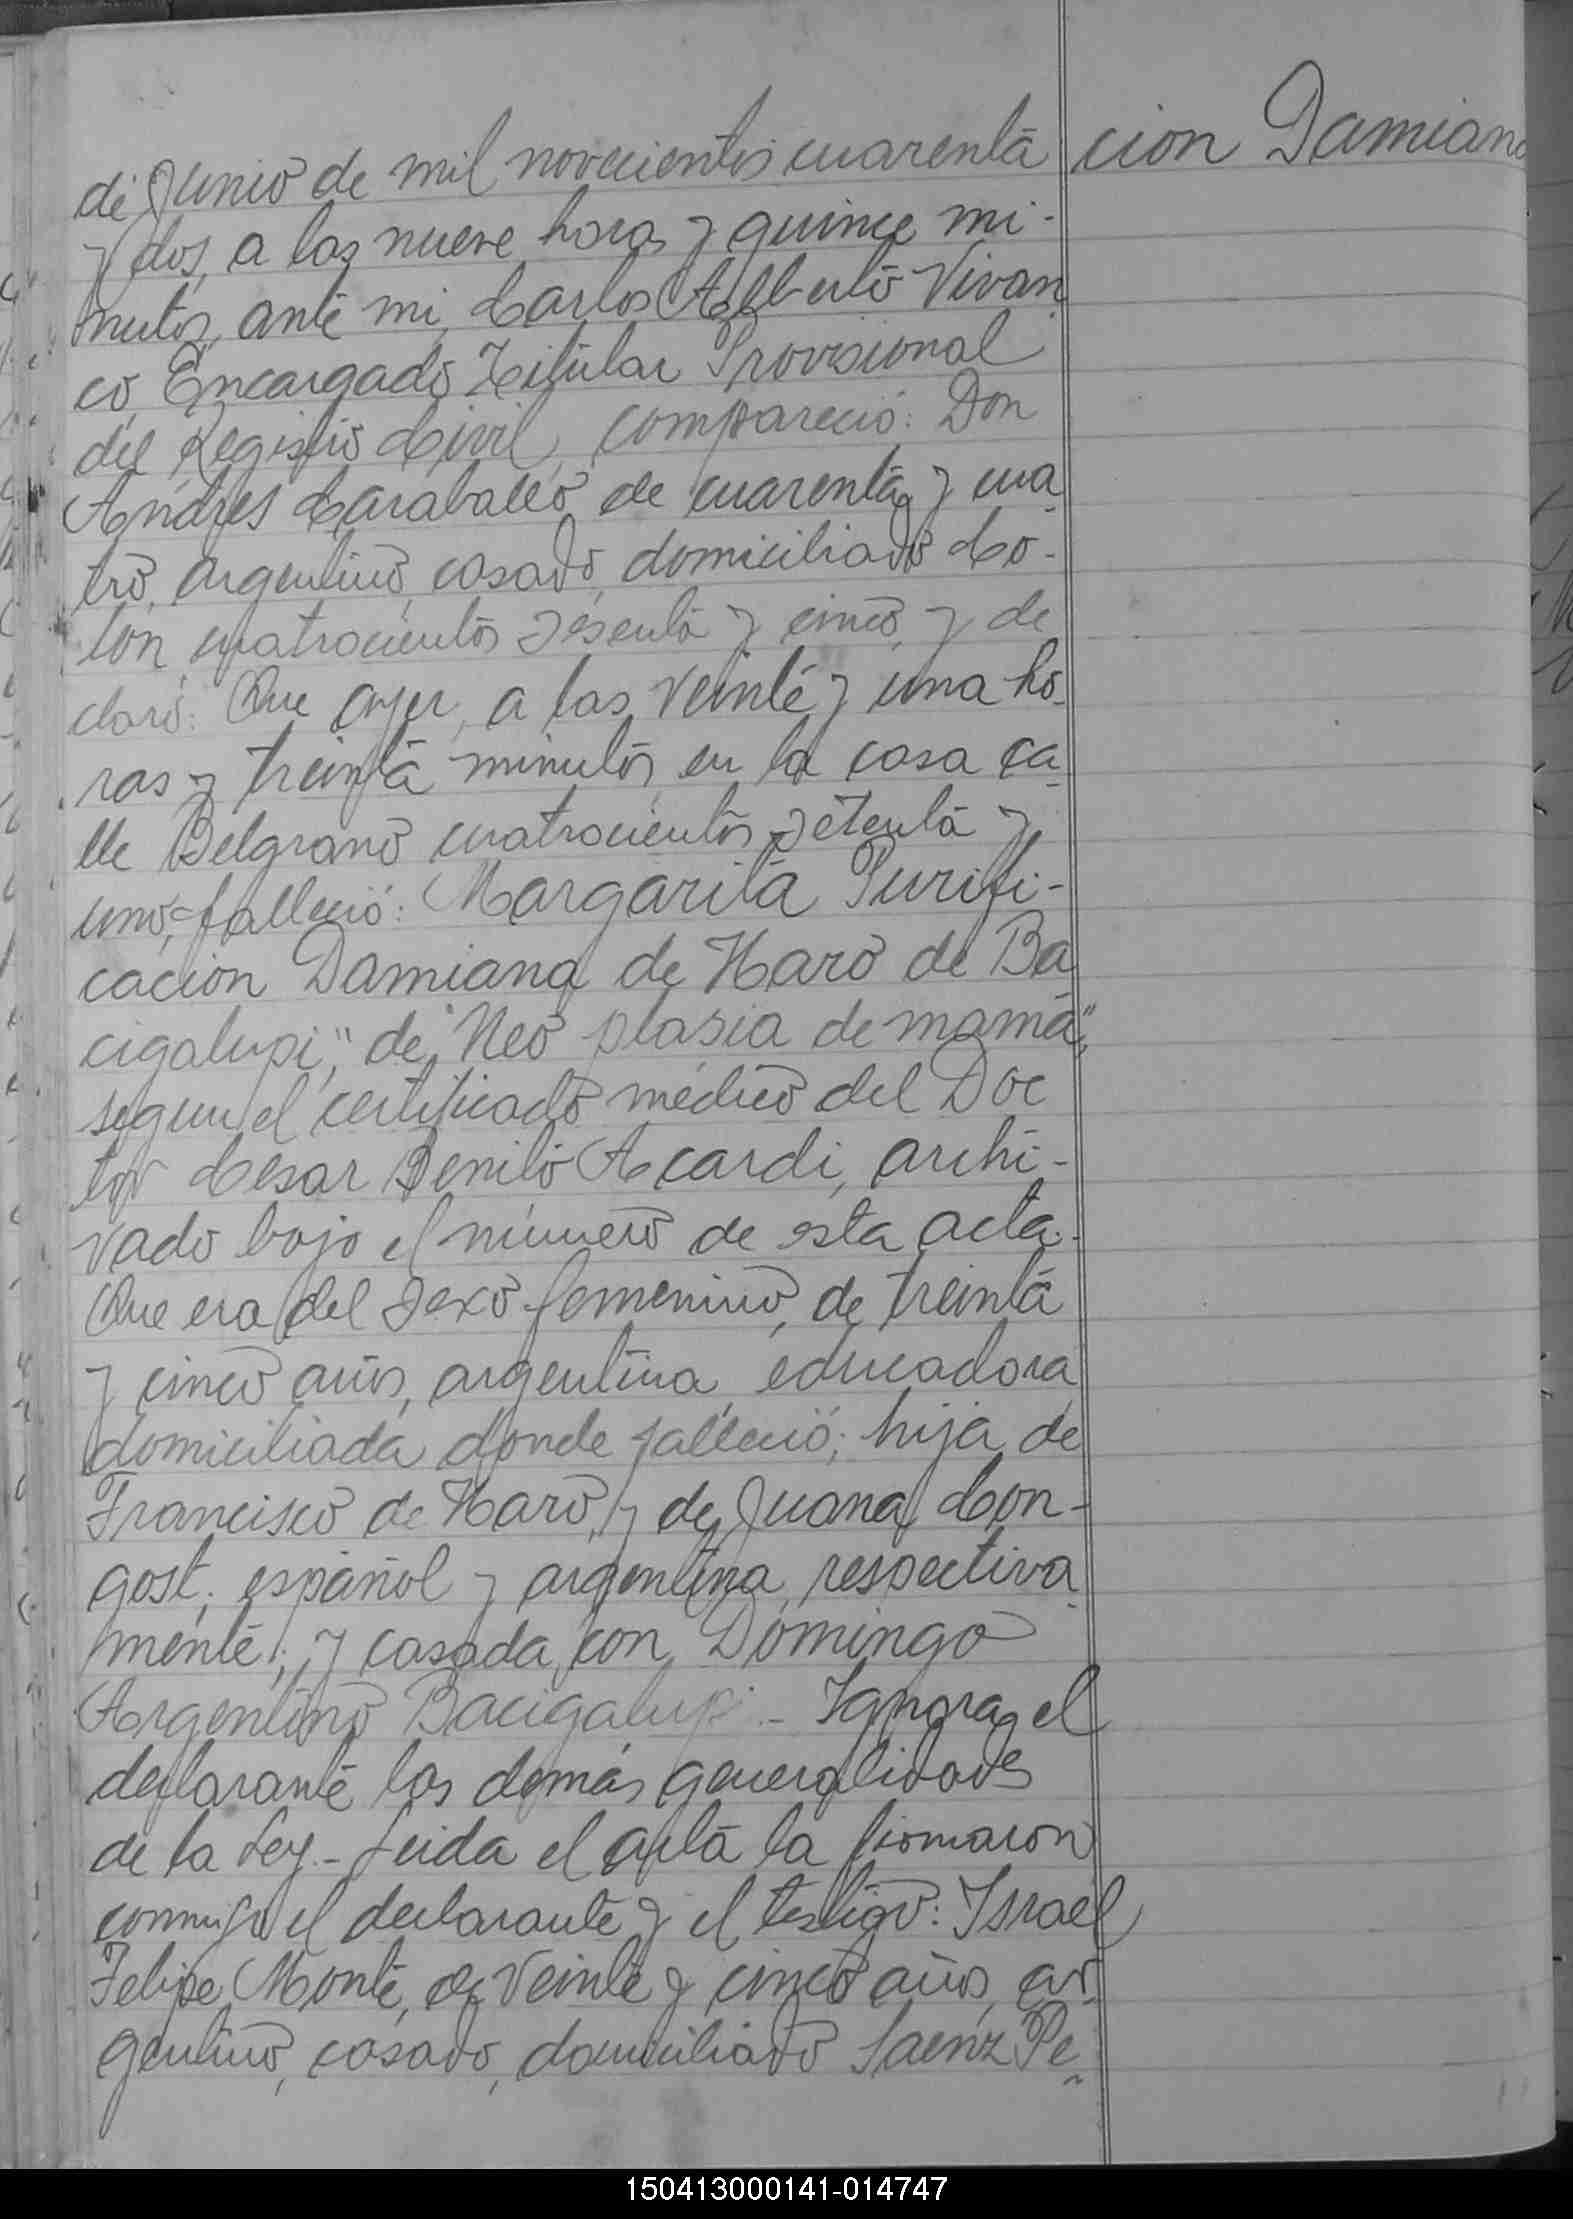 cion Damiana
de Junio de mil novecientos cuarenta
y dos, a las nueve horas y quince mi-
nutos, ante mi, Carlos Alberto Vivan
co, Encargado Titular Provisional
del Registro Civil, compareció: Don
Andres Caraballo de cuarenta y cua
tro, argentino, casado, domiciliado Co-
lon cuatrocientos sesenta y cinco, y de
claró: Que ayer, a las veinte y una ho-
ras y treinta minutos, en la casa ca
lle Belgrano cuatrocientos setenta y
uno, falleció: Margarita Purifi-
cacion Damiana de Haro de Ba
cigalupi, de "Neo plasia de mama",
segun el certificado médico del Doc
tor Cesar Benito Acardi, archi-
vado bajo el número de esta acta.
Que era del sexo femenino, de treinta
y cinco años, argentina, educadora
domiciliada donde falleció; hija de
Francisco de Haro, y de Juana Con-
gost, español y argentina, respectiva
mente; y casada con Domingo
Argentino Bacigalupi.- Ignora el
declarante las demás generalidades
de la Ley.- Leida el acta la firmaron
conmigo el declarante y el testigo: Israel
Felipe Monte, de veinte y cinco años, ar
gentino, casado, domiciliado Saenz Pe-
150413000141-014747